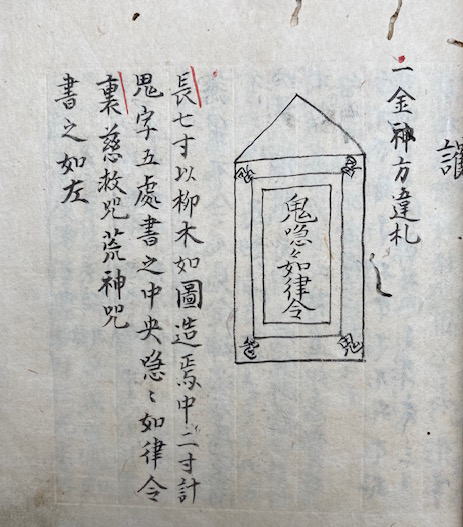 護
一金神方違札
鬼喼〻如律令
鬼
鬼
鬼
鬼
長七寸以柳木如圖造焉中二寸計
鬼字五處書之中央喼〻如律令
裏慈救呪荒神呪
書之如左